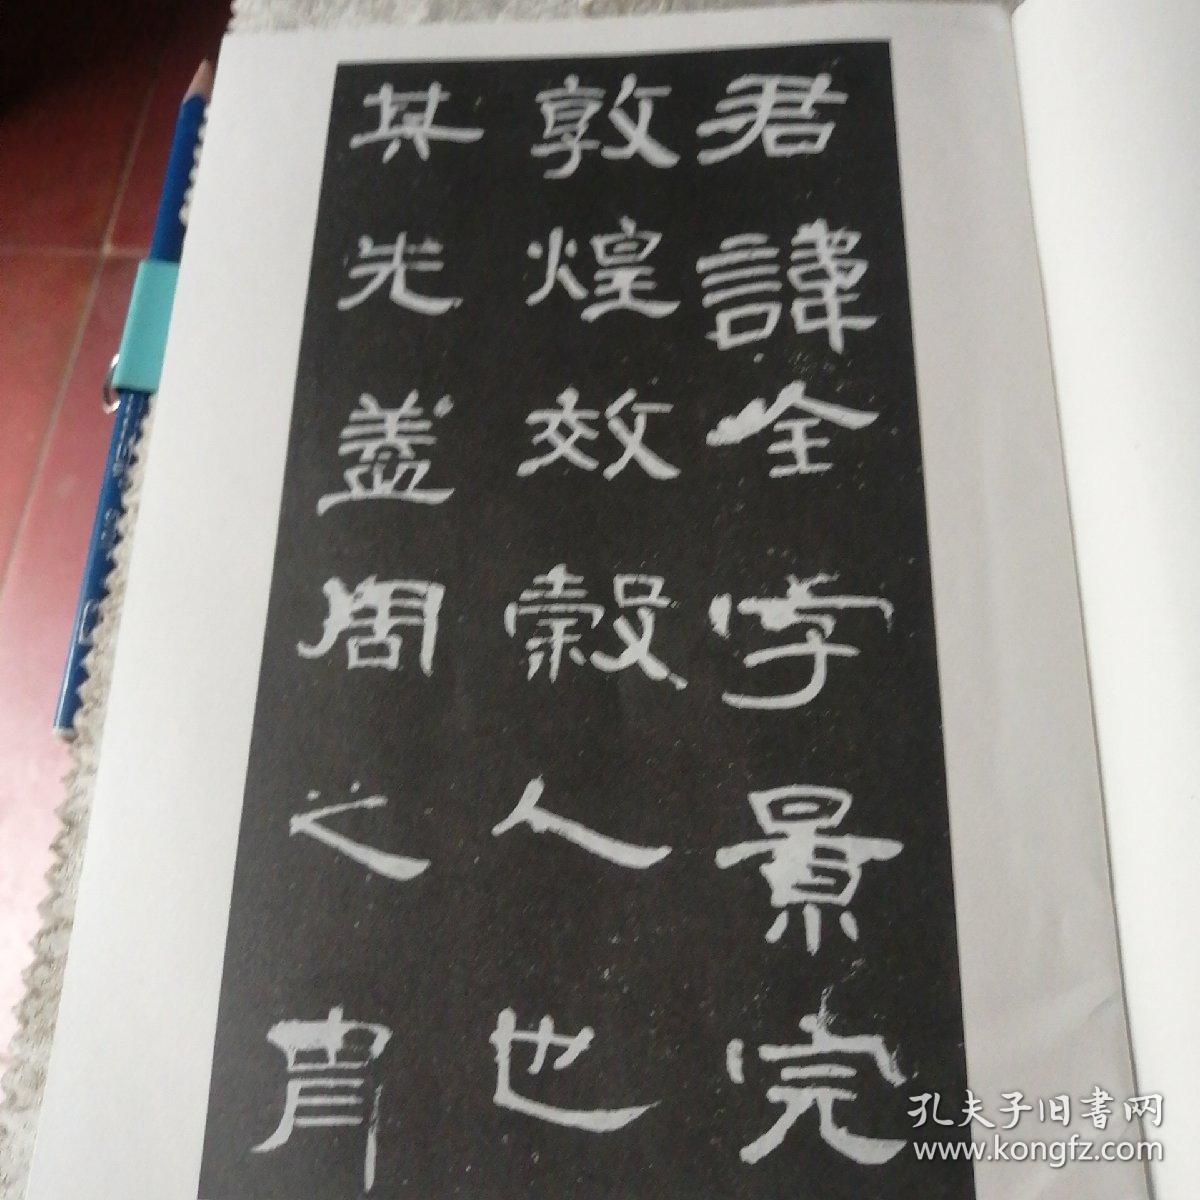 君諱全字景完
敦煌效穀人也
其先蓋周之胄
孔夫子旧書网
www.kongfz.com